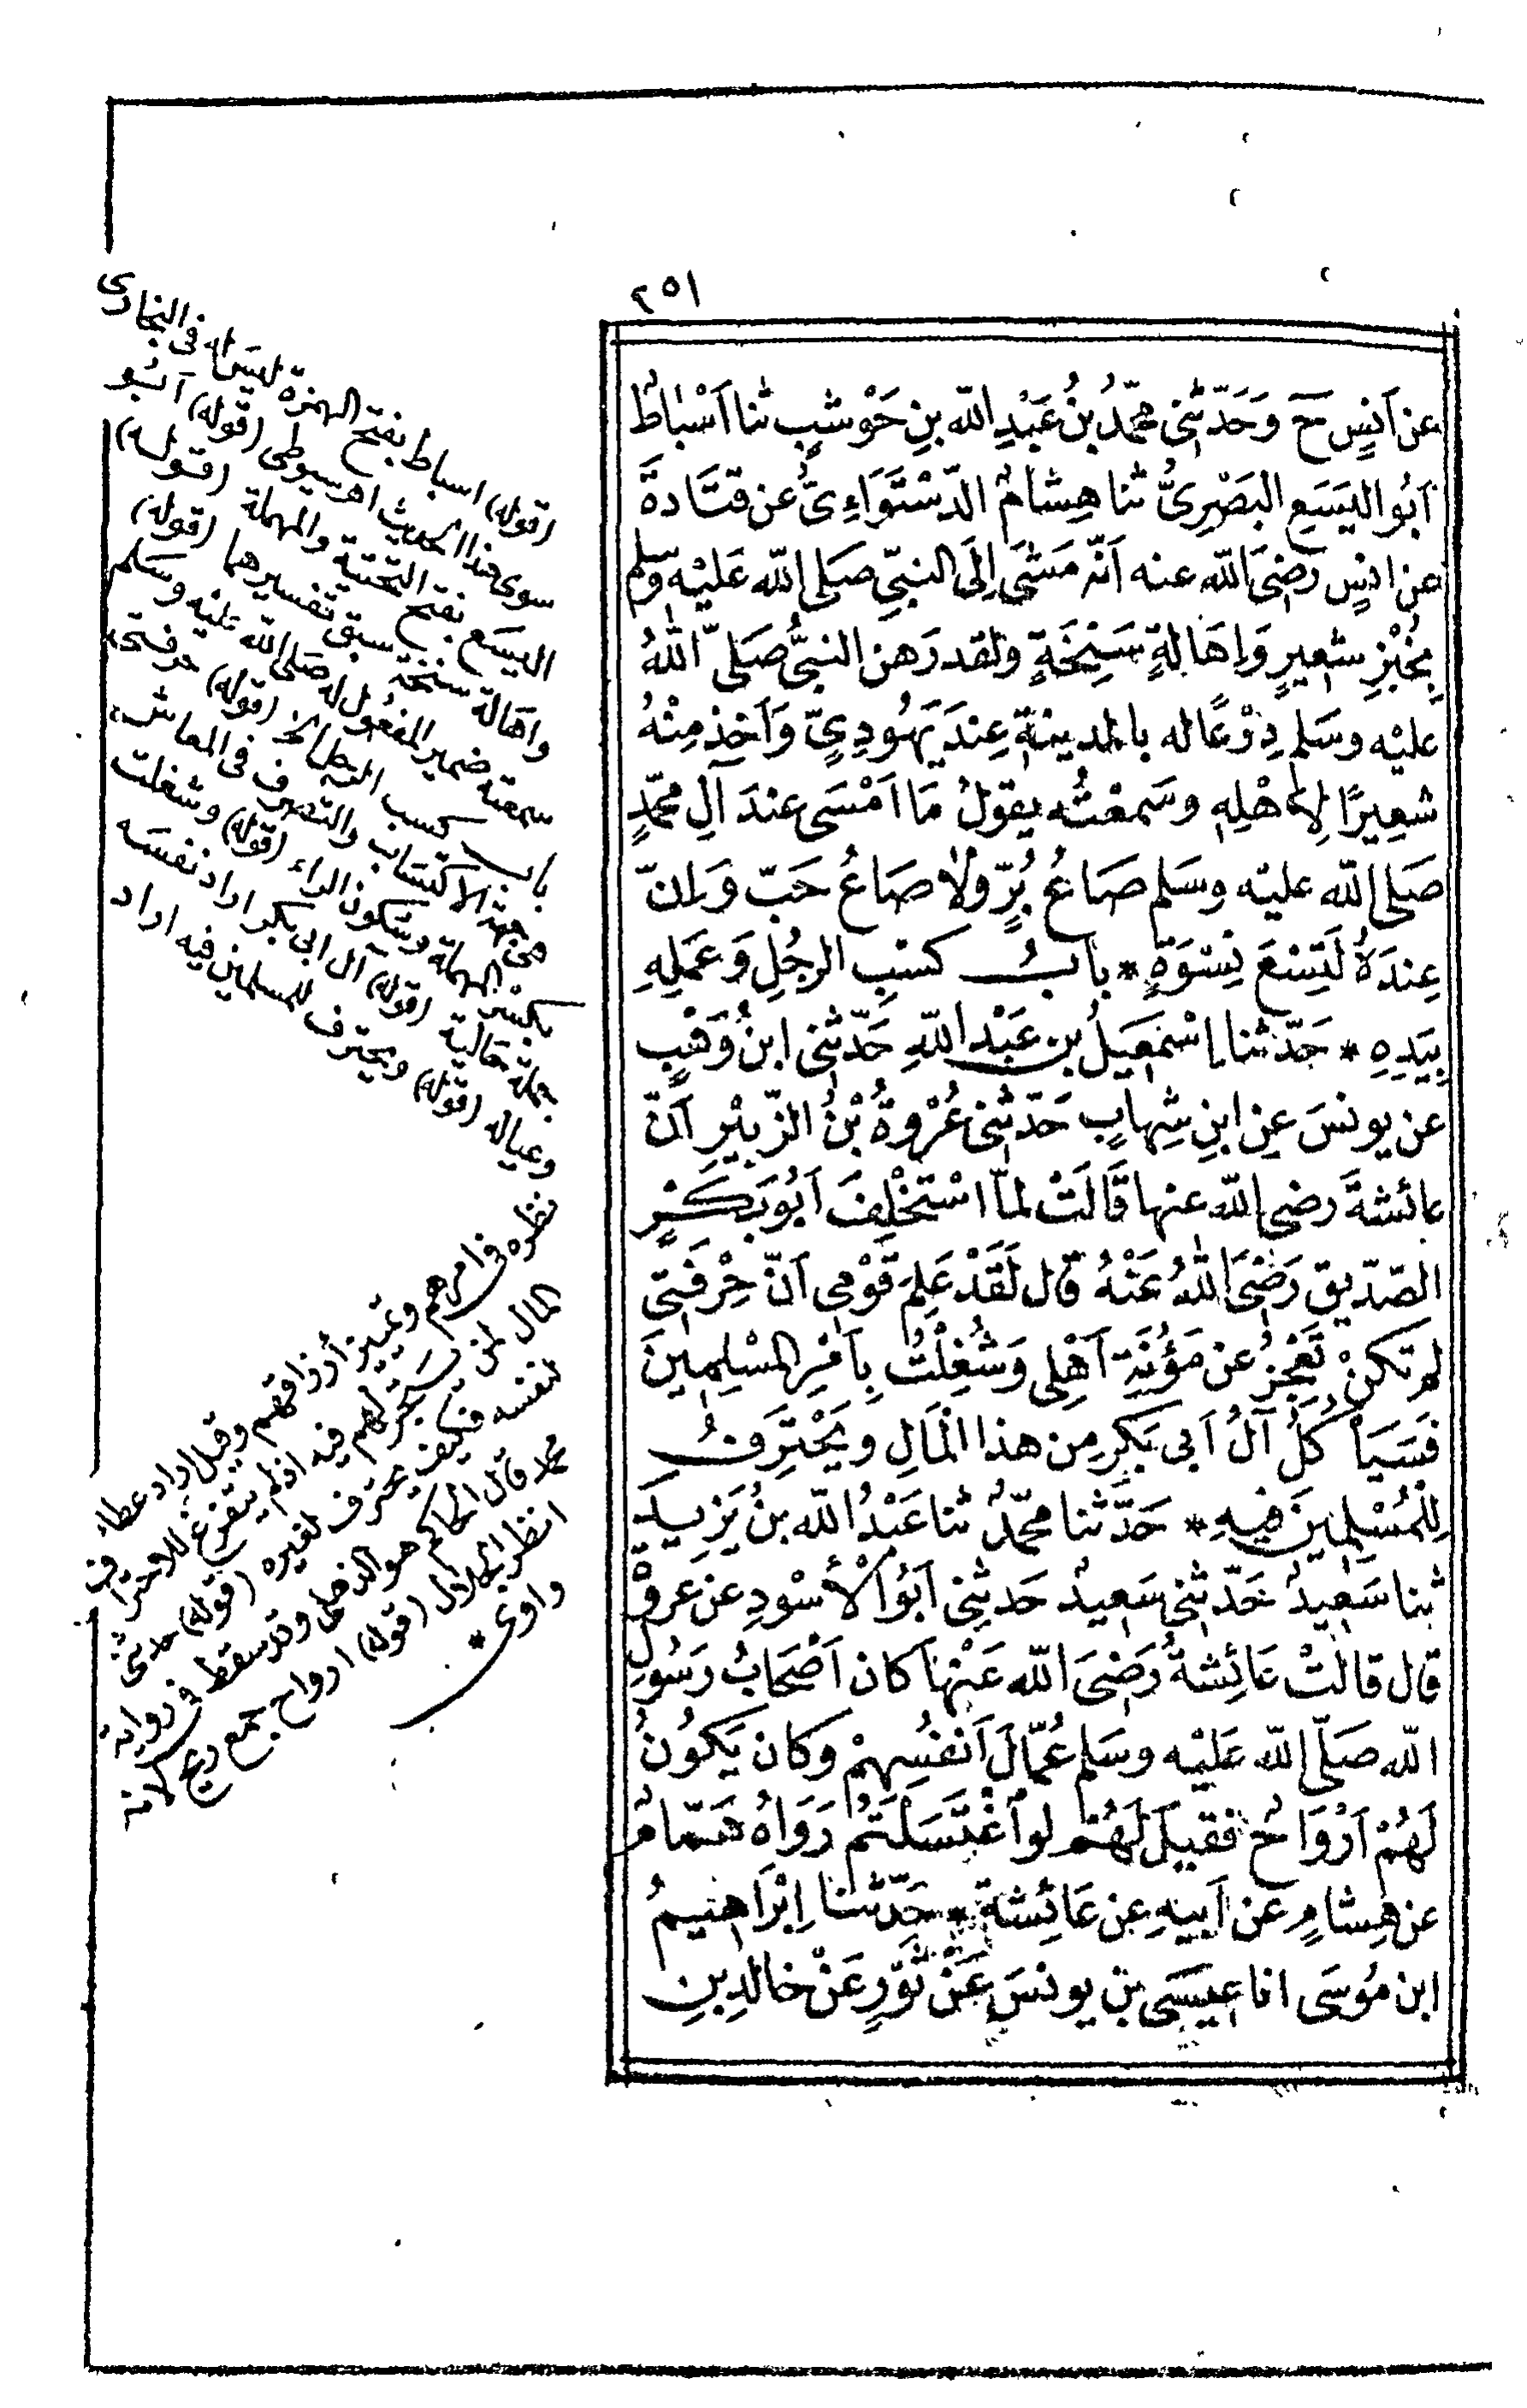 ٢٥١
عن اَنَسٍ حَ وَحَدَّثَنِى مُحَمَّدُ بنُ عَبْدِ اللّه بنِ حَوْشَبٍ ثنا اَسْبَاطٌ
اَبُو اليَسَعِ البَصْرِىُّ ثنا هِشَامٌ الدَّسْتَوَاءِىُّ عن قتَادةَ
عن انسٍ رَضِىَ اللّه عنه اَنّه مَشَى اِلَى النبىِّ صَلى اللّه عَليْه وَسلم
بِخُبْزِ شعِيرٍ وَاِهَالةٍ سَنِخَةٍ ولقد رَهن النبىُّ صَلىّ اللّهُ
عليْه وسَلم دِرْعًا له بالمدينةِ عِندَ يَهُودِىٍّ وَاَخذ مِنْهُ
شعِيرًا لِاَهْلِهِ وسَمعْتُه يقولُ مَا اَمْسَى عندَ آلِ محمّدٍ
صَلى اللّه عليْه وسَلم صَاعُ بُرٍّ ولا صَاعُ حَبّ وَاِنّ
عِندَهُ لَتِسْعَ نِسْوَةٍ * بابُ كسْبِ الرجُلِ وَعَمَلِهِ
بِيَدِهِ * حَدّثنا اسْمَعِيلُ بن عَبْد اللّهِ حَدّثنِى ابنُ وَهْبٍ
عن يونسَ عنِ ابنِ شِهابٍ حَدّثنِى عُرْوةُ بْنُ الزّبيْرِ اَنّ
عائشةَ رضى اللّه عنها قَالَتْ لماّ اسْتَخْلِفَ اَبُو بَكْرٍ
الصّدّيق رَضِىَ اللّهُ عَنْهُ قال لَقَدْ عَلِمَ قَوْمِى اَنّ حِرْفَتِى
لم تكنْ تَعْجِزُ عن مَؤُنَةِ اَهْلِى وَشُغِلْتُ بِاَمْرِ المسْلِمِينَ
فسَيَأْكُلُ آلُ اَبى بَكرٍ مِن هذا المَالِ ويَحْتَرِفُ
لِلْمُسْلِمِينَ فِيهِ * حَدَّثنا محمّدٌ ثنا عَبْدُ اللّه بنُ يَزِيدَ
ثنا سَعِيدٌ حَدّثنِى سَعيدٌ حَدثنِى اَبُو الْأَسْودِ عن عروةَ
قال قالتْ عَائِشةُ رَضِىَ اللّه عَنْها كان اَصْحَابُ رَسُولِ
اللّه صَلّى اللّه عَليْه وسَلم عُمّالَ اَنفُسِهِمْ وكان يَكُونُ
لَهُمْ اَرْوَاحٌ فقيلَ لَهُمْ لو اغْتَسَلْتُمْ رَوَاهُ هَمّامٌ
عن هِشامٍ عن اَبيهِ عن عَائِشةَ * حَدّثنا اِبْرَاهِيمُ
ابن مُوسَى انا عيسَى بن يونسَ عَنْ ثَوْرٍ عَنْ خالدِ بنِ
(قوله) اسباط بفتح الهمزة ليس له فى البخارى
سوى هذا الحديث اهـ سيوطى (قوله) اَبُو
اليسَع بفتح التحتية والمهملة (قوله)
واهَالة سنخة سبق تفسيرهما (قوله)
سمعته ضمير المفعول له صلى اللّه عليه وسلم
باب كسب الرجل الخ (قوله) حرفتى
هى جهة الاكتساب والتصرف فى المعاش
بكسر المهملة وسكون الراء (قوله) وشغلت
جملة حالية (قوله) آل ابى بكر اراد نفسَه
وعياله (قوله) ويحترف للمسلمين فيه اراد
نظره فى امرهم وتمييز أرزاقهم وقيل اراد عطاء
المال لمن يتجر لهم فيه اذ لم يتفرغ للاحتراف
لنفسه فكيف يحترف لغيره (قوله) حدثنى
محمد قال الحاكم هو الذهلى وقد سقط فى رواية
انظر الجلال (قوله) ارواح جمع ريح لانه
واوى *